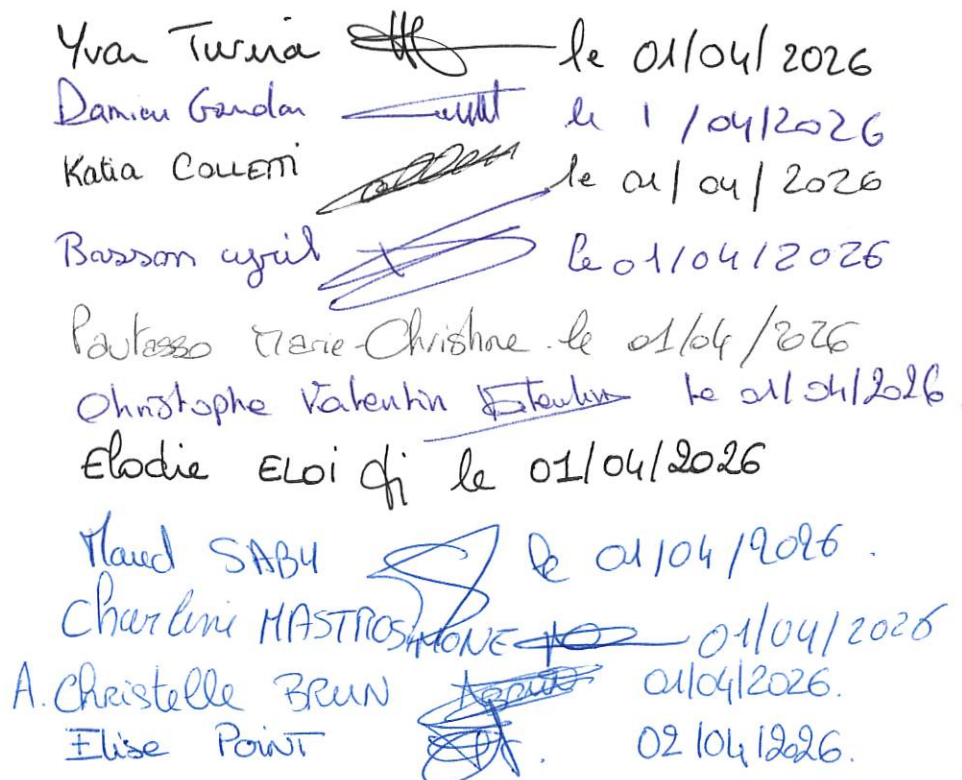 Yvan Turina le 01/04/2026
Damien Gandon le 1/04/2026
Katia COLLETTI le 01/04/2026
Basson cyril le 01/04/2026
Pautasso Marie-Christine le 01/04/2026
Christophe Valentin le 01/04/2026
Elodie ELOI le 01/04/2026
Maud SABY le 01/04/2026.
Charline MASTROSIMONE 01/04/2026
A. Christelle BRUN 01/04/2026.
Elise POINT 02/04/2026.